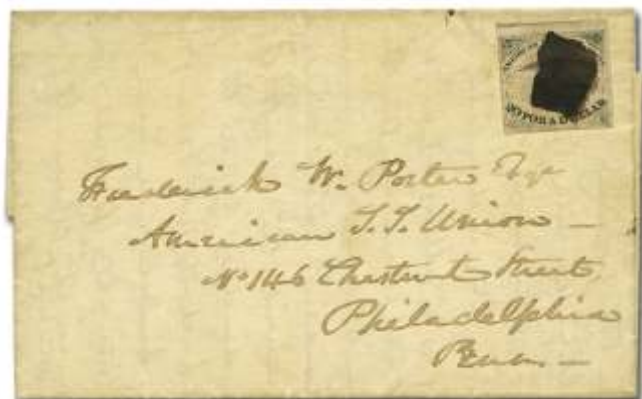 20 FOR A DOLLAR
Frederick W. Porter Esqr
American S. S. Union —
No 146 Chestnut Street,
Philadelphia
Penn. —